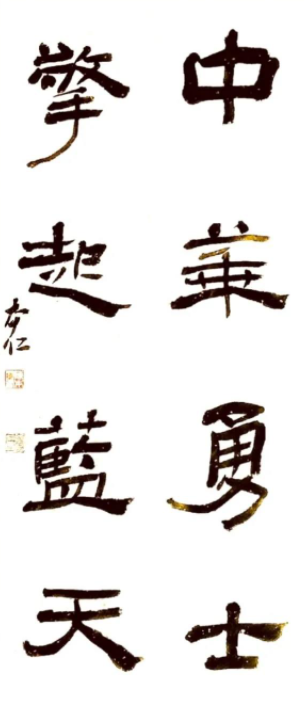 中華勇士
擎起藍天